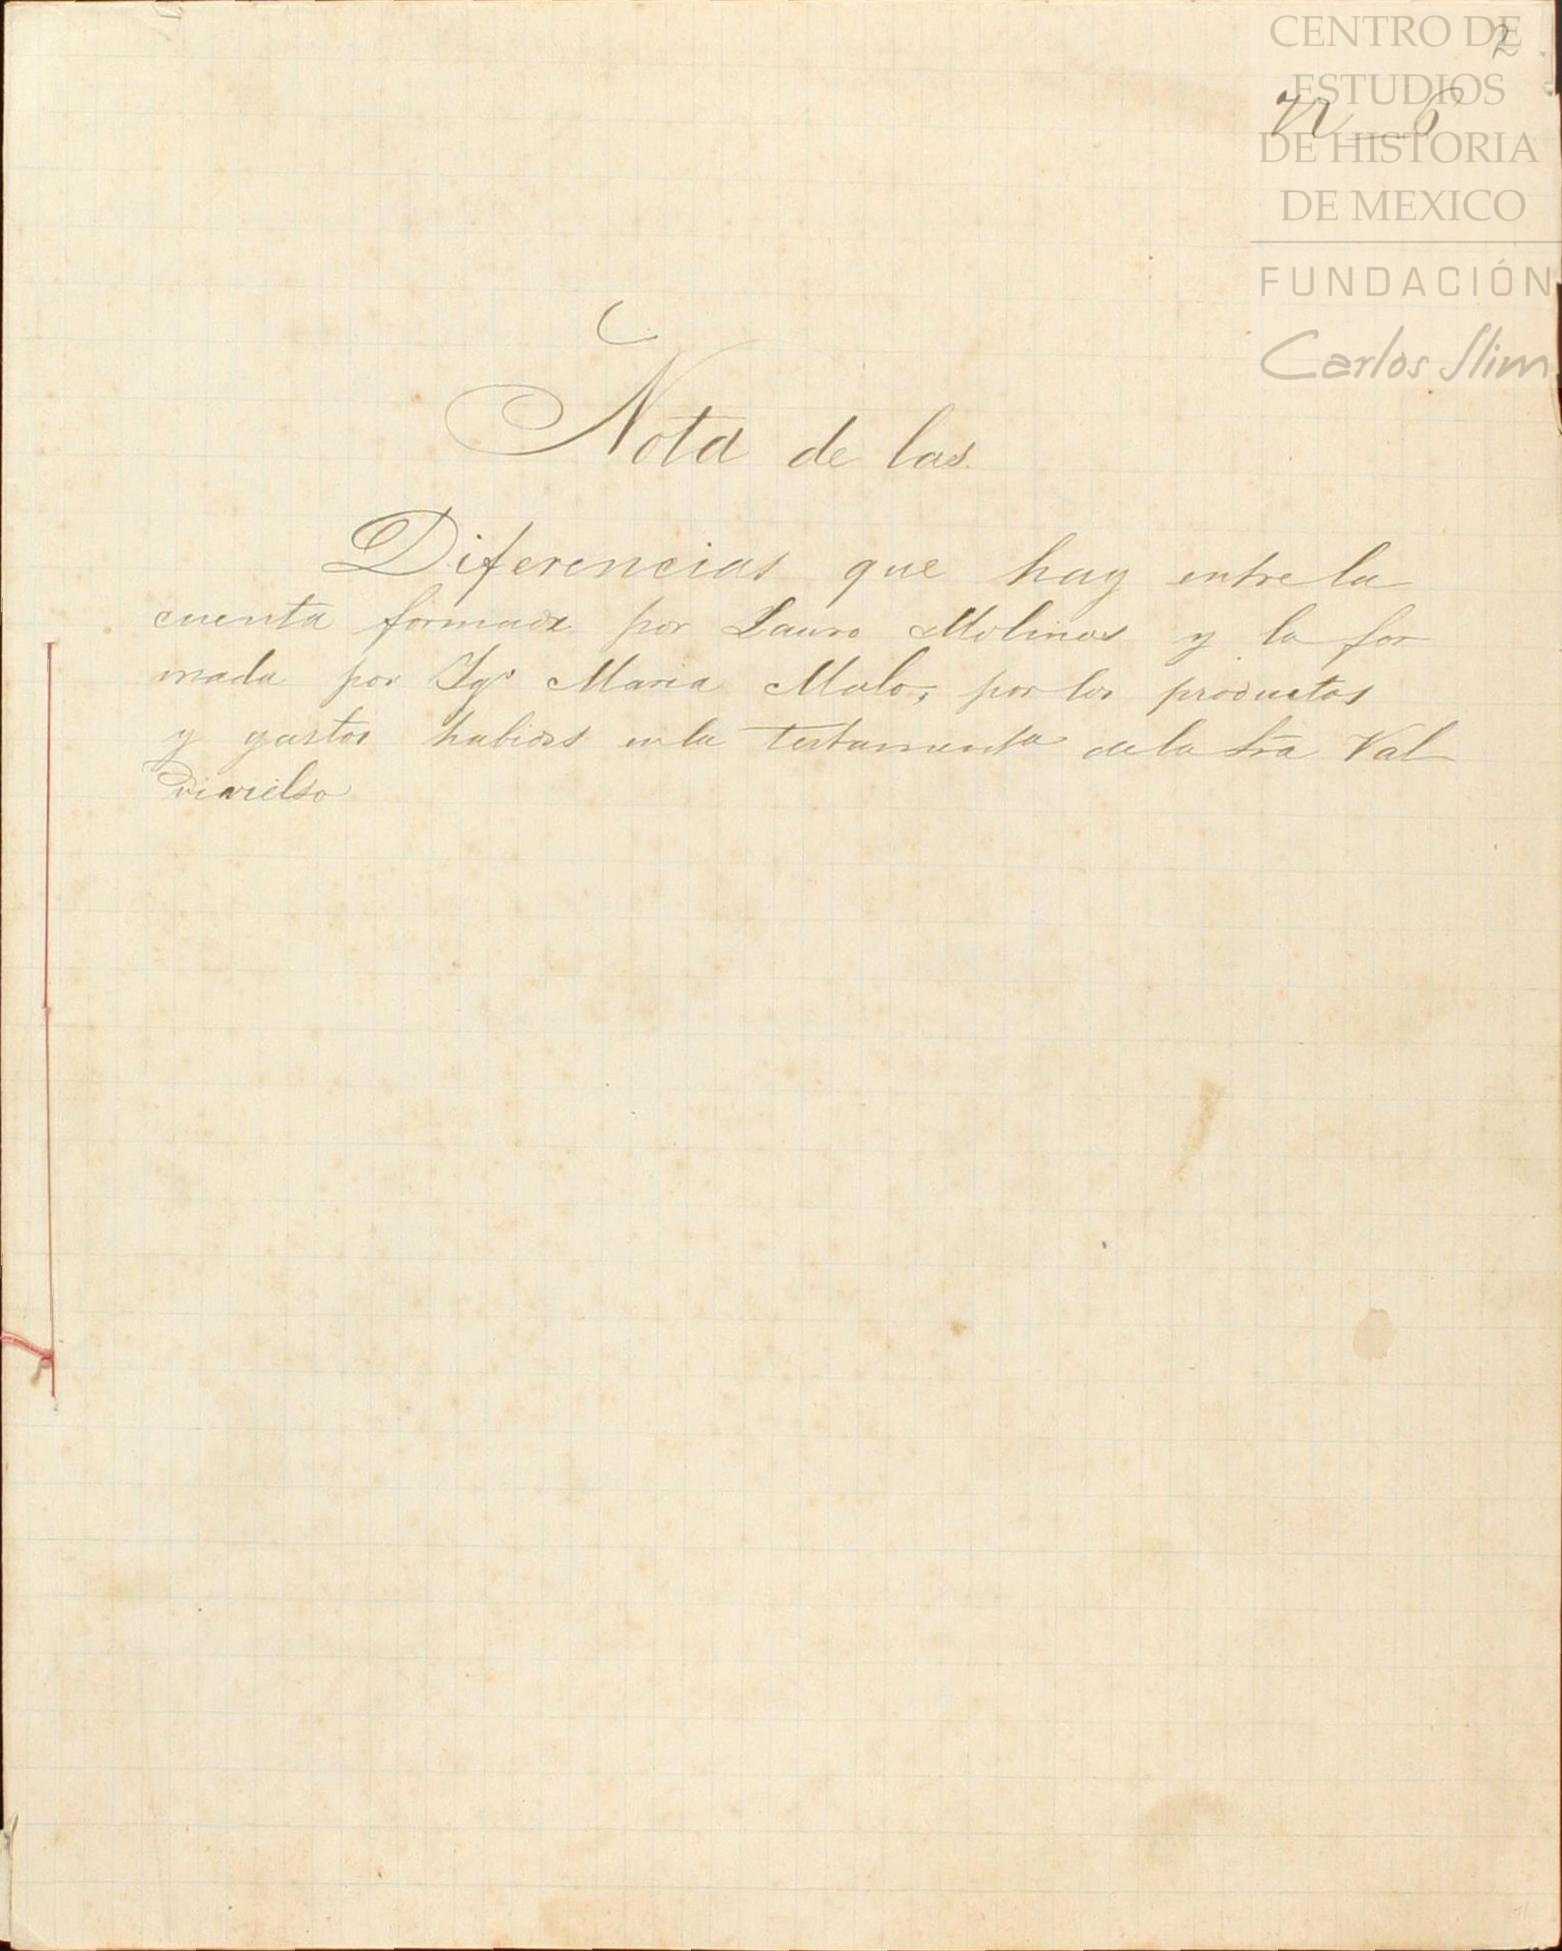 2
CENTRO DE
ESTUDIOS
DE HISTORIA
DE MEXICO
FUNDACIÓN
Carlos Slim
Nota de las
Diferencias que hay entre la
cuenta formada por Lauro Molinos y la for
mada por Igo Maria Malo, por los productos
y gastos habidos en la testamenta de la Sra Val
divielso